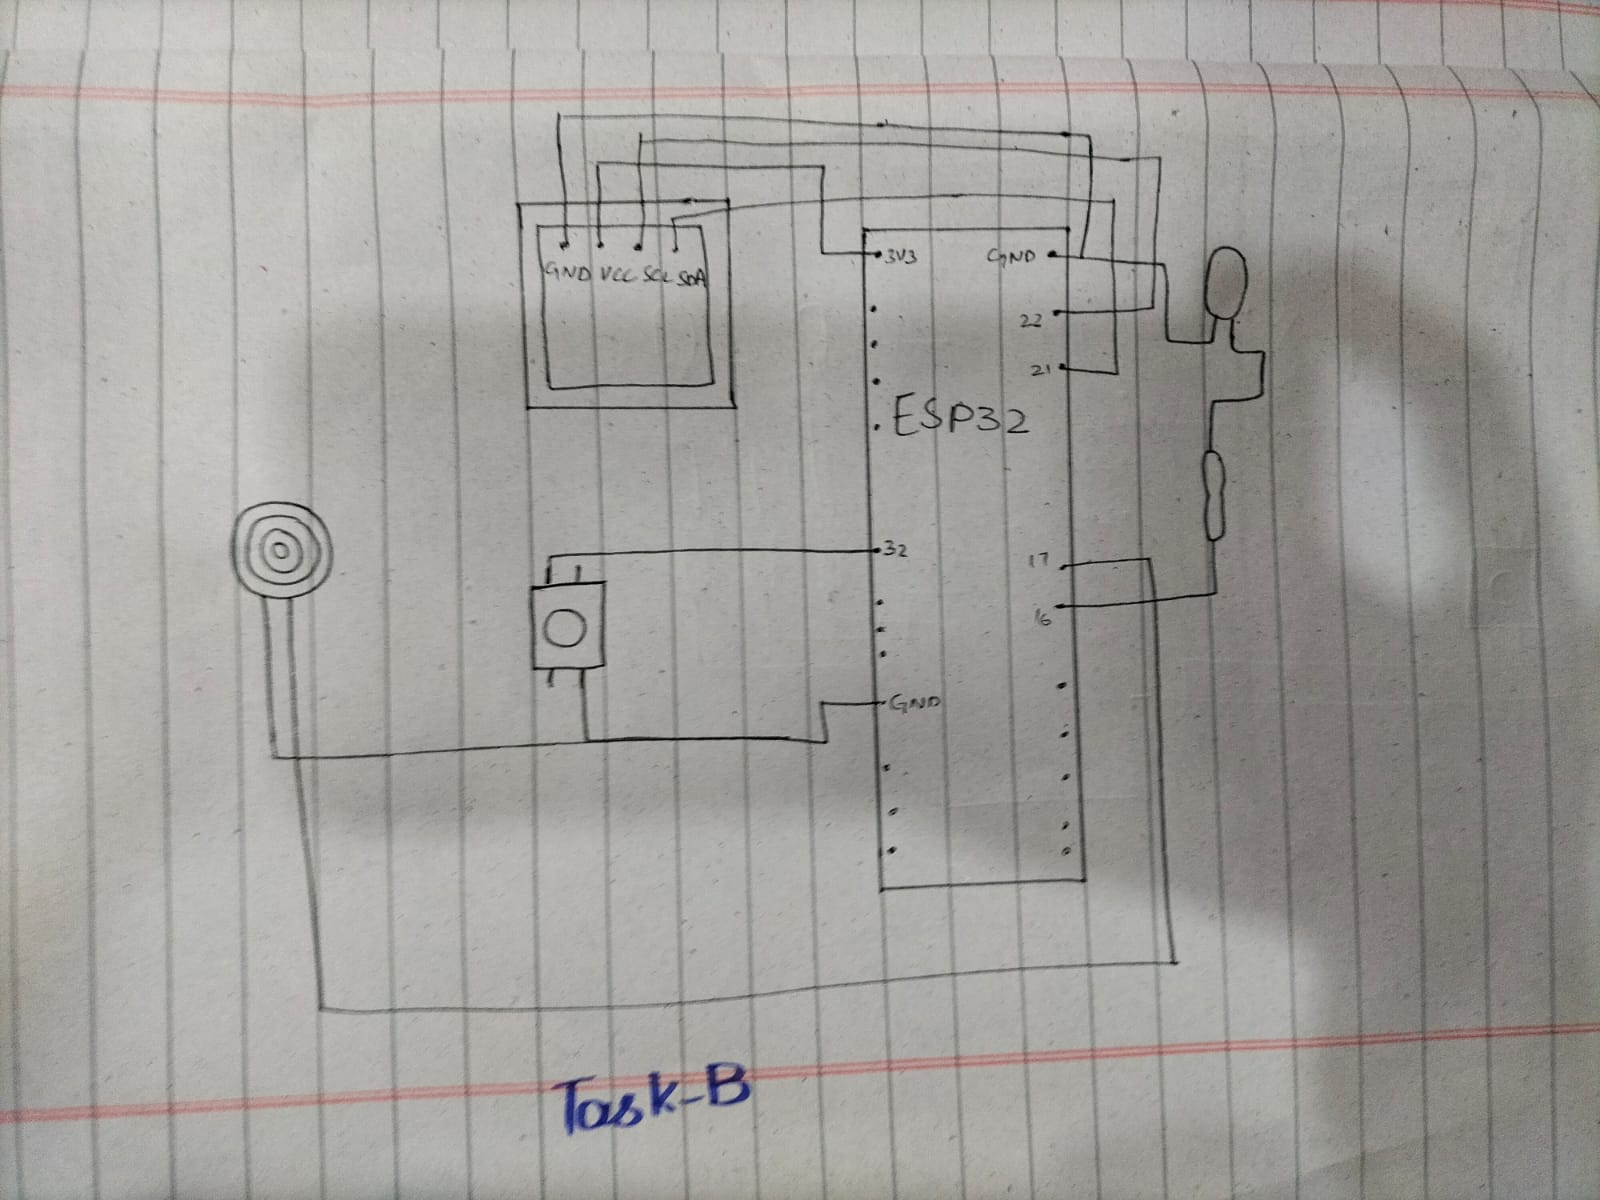 GND VCC SCL SDA
3V3
GND
22
21
ESP32
32
17
16
GND
Task-B